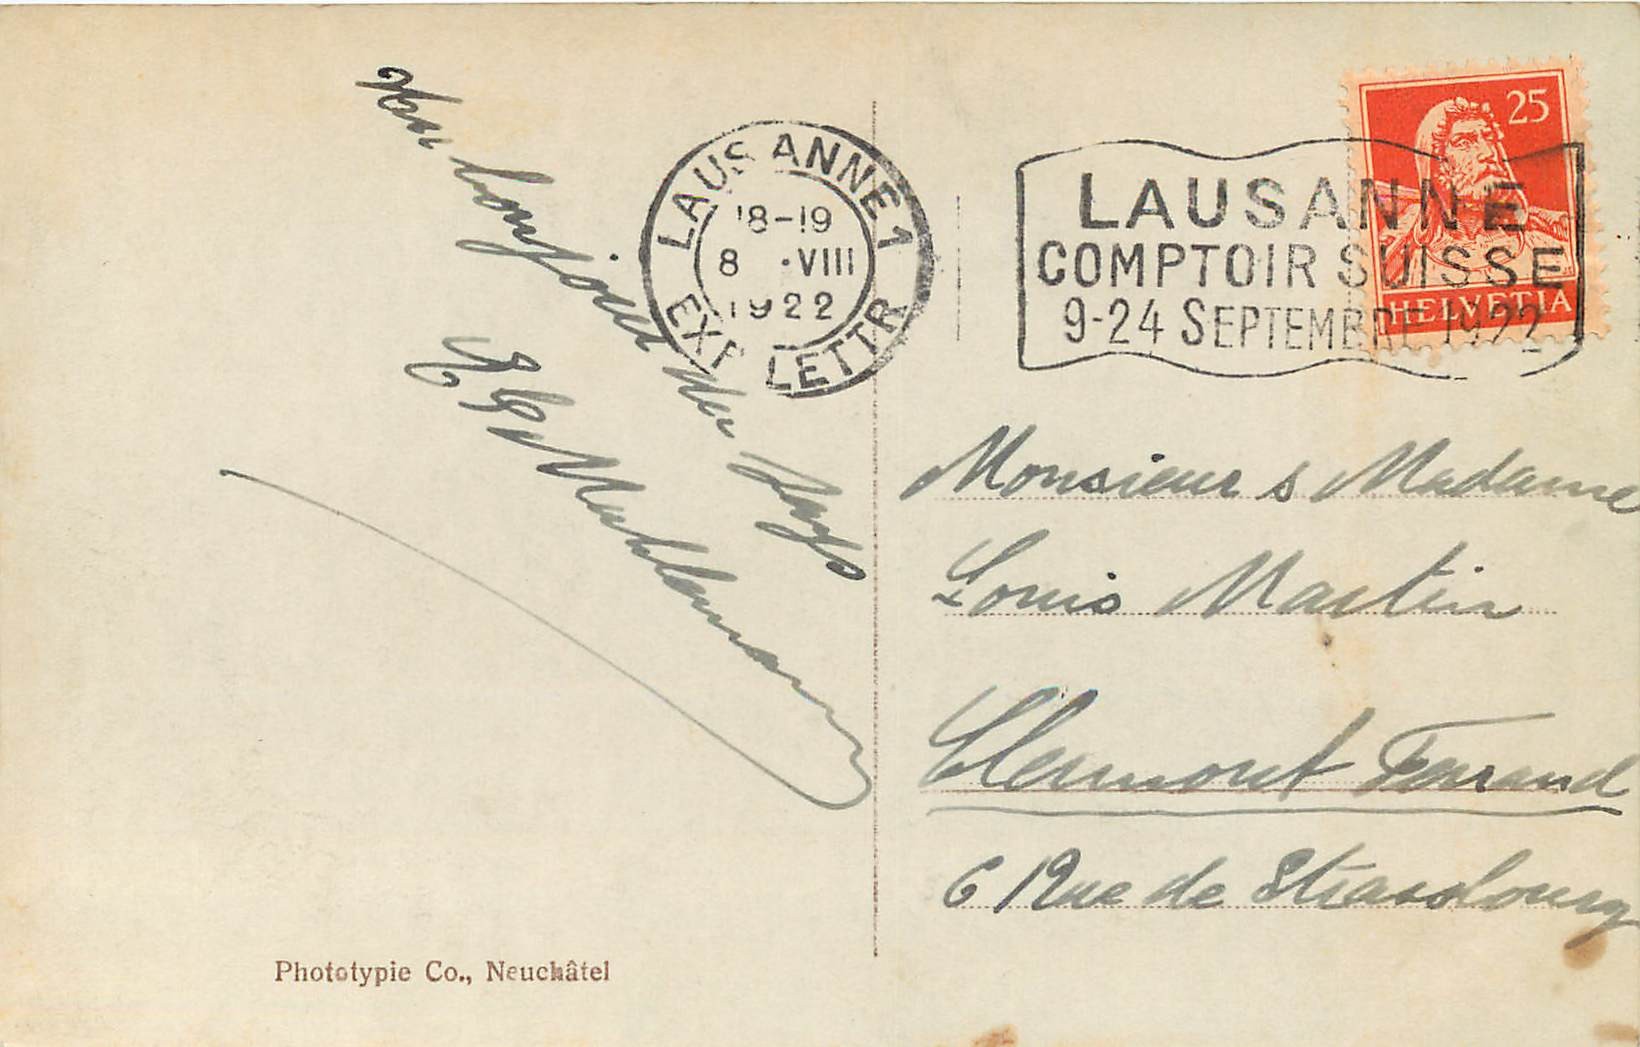 bonjour du Pays
LAUSANNE 1
18-19
8 .VIII
1922
EXP. LETTR
LAUSANNE
COMPTOIR SUISSE
9-24 SEPTEMBRE 1922
25
HELVETIA
Monsieur & Madame
Louis Martin
Clermont Ferrand
6 Rue de Strasbourg
Phototypie Co., Neuchâtel